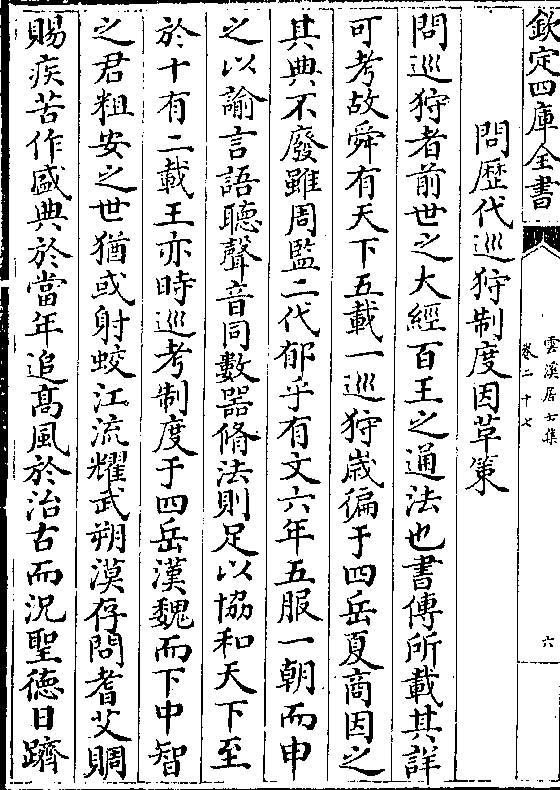 欽定四庫全書
雲溪居士集
卷二十七
六
問歴代巡狩制度因草策
問巡狩者前世之大經百王之通法也書傳所載其詳
可考故舜有天下五載一巡狩嵗徧于四岳夏商因之
其典不廢雖周監二代郁乎有文六年五服一朝而申
之以諭言語聽聲音同數器脩法則足以協和天下至
於十有二載王亦時巡考制度于四岳漢魏而下中智
之君粗安之世猶或射蛟江流耀武朔漠存問耆艾賙
賜疾苦作盛典於當年追髙風於治古而況聖徳日躋